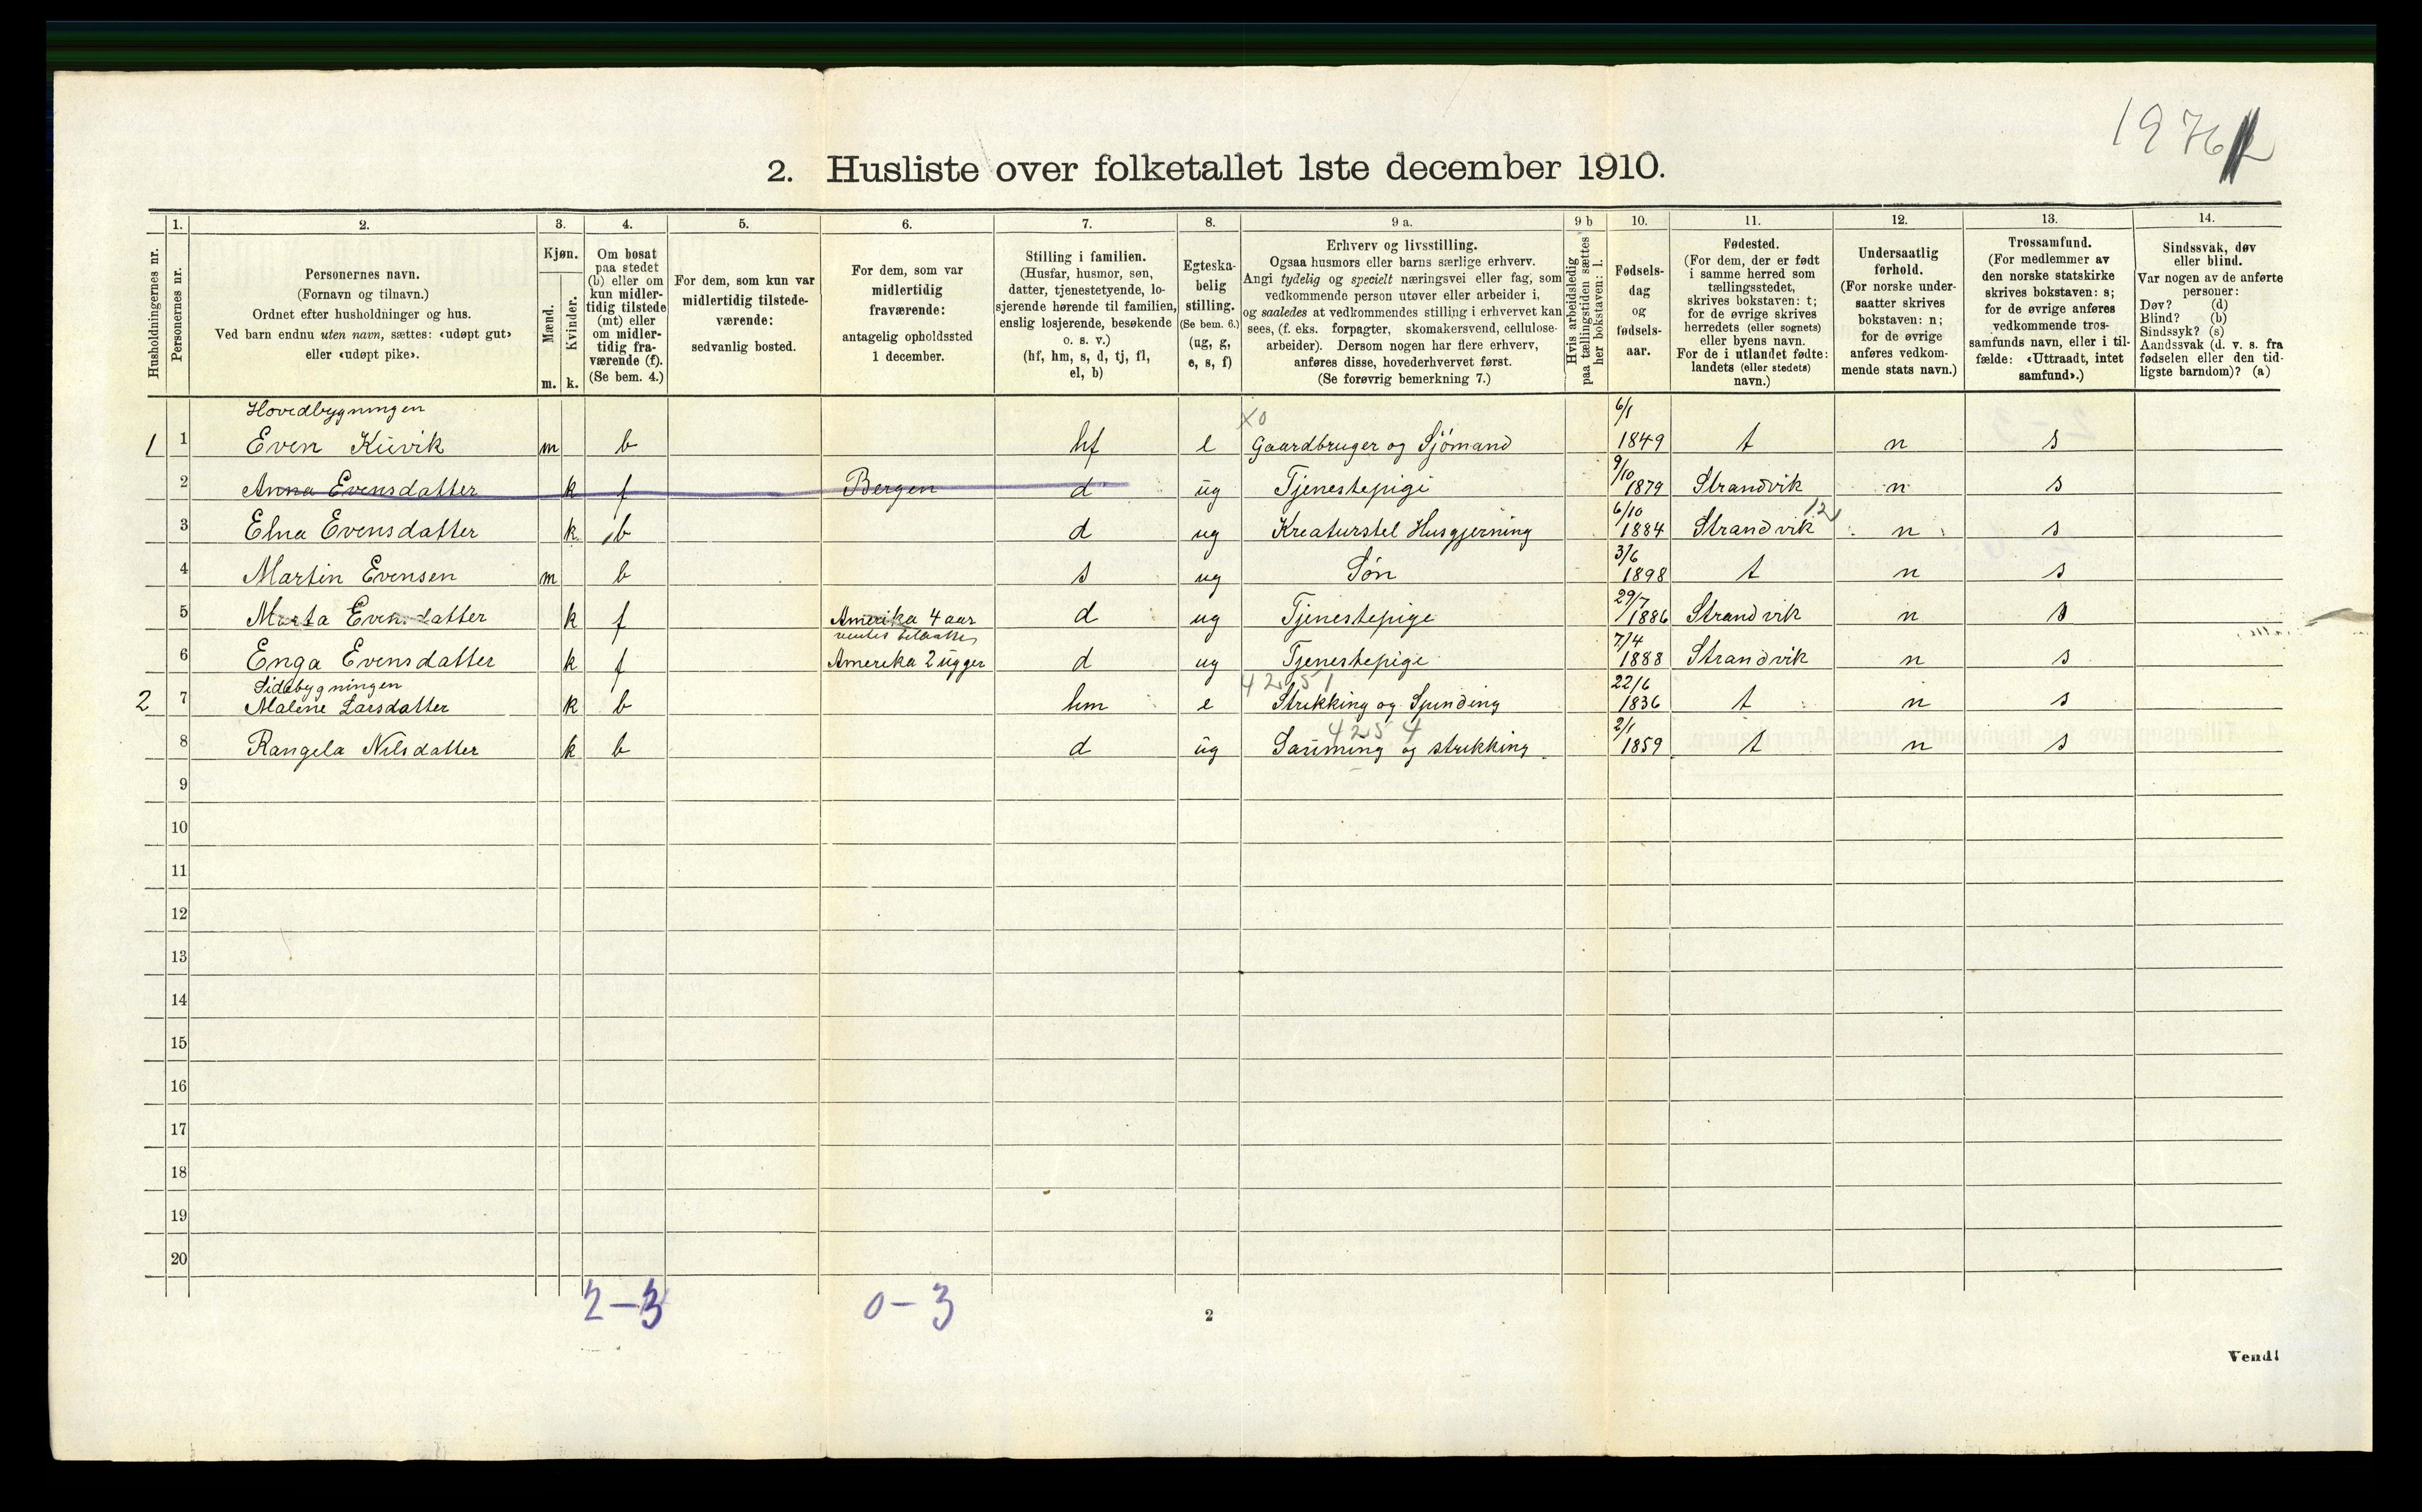 1976
2. Husliste over folketallet 1ste december 1910.
Husholdningernes nr.
1. Personernes nr.
2. Personernes navn.
(Fornavn og tilnavn.)
Ordnet efter husholdninger og hus.
Ved barn endnu uten navn, sættes: «udøpt gut»
eller «udøpt pike».
3. Kjøn.
Mænd. m.
Kvinder. k.
4. Om bosat
paa stedet
(b) eller om
kun midler-
tidig tilstede
(mt) eller
om midler-
tidig fra-
værende (f).
(Se bem. 4.)
5. For dem, som kun var
midlertidig tilstede-
værende:
sedvanlig bosted.
6. For dem, som var
midlertidig
fraværende:
antagelig opholdssted
1 december.
7. Stilling i familien.
(Husfar, husmor, søn,
datter, tjenestetyende, lo-
sjerende hørende til familien,
enslig losjerende, besøkende
o. s. v.)
(hf, hm, s, d, tj, fl,
el, b)
8. Egteska-
belig
stilling.
(Se bem. 6.)
(ug, g,
e, s, f)
9 a. Erhverv og livsstilling.
Ogsaa husmors eller barns særlige erhverv.
Angi tydelig og specielt næringsvei eller fag, som
vedkommende person utøver eller arbeider i,
og saaledes at vedkommendes stilling i erhvervet kan
sees, (f. eks. forpagter, skomakersvend, cellulose-
arbeider). Dersom nogen har flere erhverv,
anføres disse, hovederhvervet først.
(Se forøvrig bemerkning 7.)
9 b Hvis arbeidsledig
paa tællingstiden sættes
her bokstaven: l.
10. Fødsels-
dag
og
fødsels-
aar.
11. Fødested.
(For dem, der er født
i samme herred som
tællingsstedet,
skrives bokstaven: t;
for de øvrige skrives
herredets (eller sognets)
eller byens navn.
For de i utlandet fødte:
landets (eller stedets)
navn.)
12. Undersaatlig
forhold.
(For norske under-
saatter skrives
bokstaven: n;
for de øvrige
anføres vedkom-
mende stats navn.)
13. Trossamfund.
(For medlemmer av
den norske statskirke
skrives bokstaven: s;
for de øvrige anføres
vedkommende tros-
samfunds navn, eller i til-
fælde: «Uttraadt, intet
samfund».)
14. Sindssvak, døv
eller blind.
Var nogen av de anførte
personer:
Døv? (d)
Blind? (b)
Sindssyk? (s)
Aandssvak (d. v. s. fra
fødselen eller den tid-
ligste barndom)? (a)
Hovedbygningen
1 1 Even Kuvik m b hf e X0 Gaardbruger og Sjömand 6/1 1849 t n s
2 Anna Evensdatter k f Bergen d ug Tjenestepige 9/10 1879 Strandvik n s
3 Elna Evensdatter k b d ug Kreaturstel Husgjerning 6/10 1884 Strandvik 12 n s
4 Martin Evensen m b s ug Søn 3/6 1898 t n s
5 Marta Evensdatter k f Amerika 4 aar d ug Tjenestepige 29/7 1886 Strandvik n s
6 Enga Evensdatter k f Amerika 2 ugger d ug Tjenestepige 7/4 1888 Strandvik n s
Sidebygningen
2 7 Malene Larsdatter k b hm e 4251 Strikking og Spinding 22/6 1836 t n s
8 Rangela Nilsdatter k b d ug 4254 Sauming og strikking 2/1 1859 t n s
9
10
11
12
13
14
15
16
17
18
19
20
2-3 0-3
2
Vend!